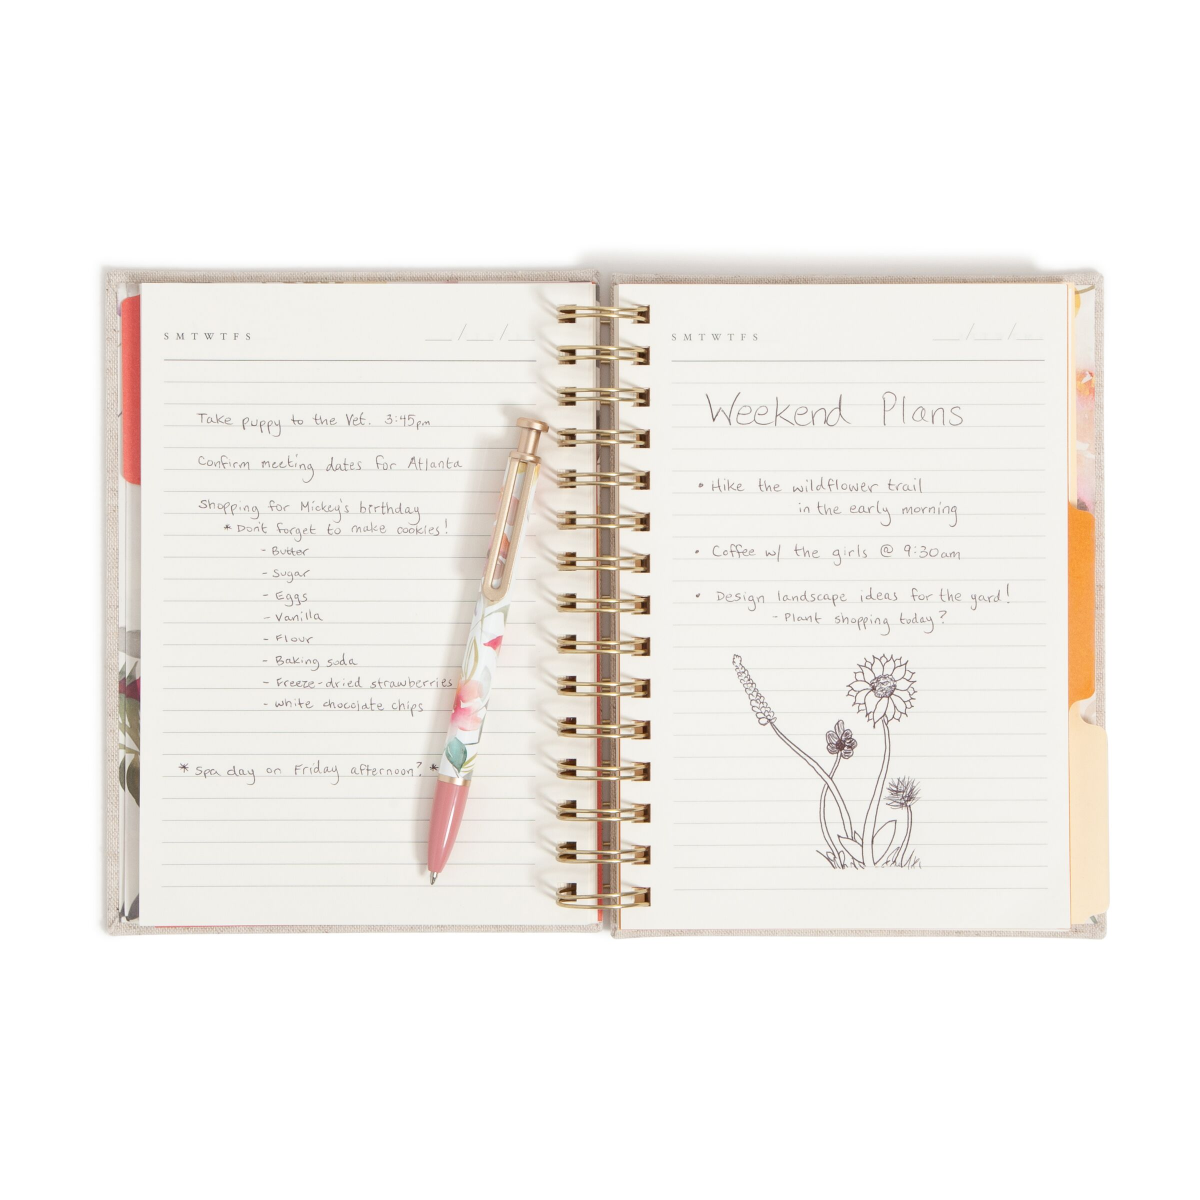 S M T W T F S __/__/__
Take puppy to the Vet. 3:45pm
Confirm meeting dates for Atlanta
Shopping for Mickey's birthday
* Don't forget to make cookies!
- Butter
- Sugar
- Eggs
- Vanilla
- Flour
- Baking soda
- Freeze-dried strawberries
- White chocolate chips
* Spa day on Friday afternoon? *
S M T W T F S __/__/__
Weekend Plans
• Hike the wildflower trail
in the early morning
• Coffee w/ the girls @ 9:30am
• Design landscape ideas for the yard!
- Plant shopping today?